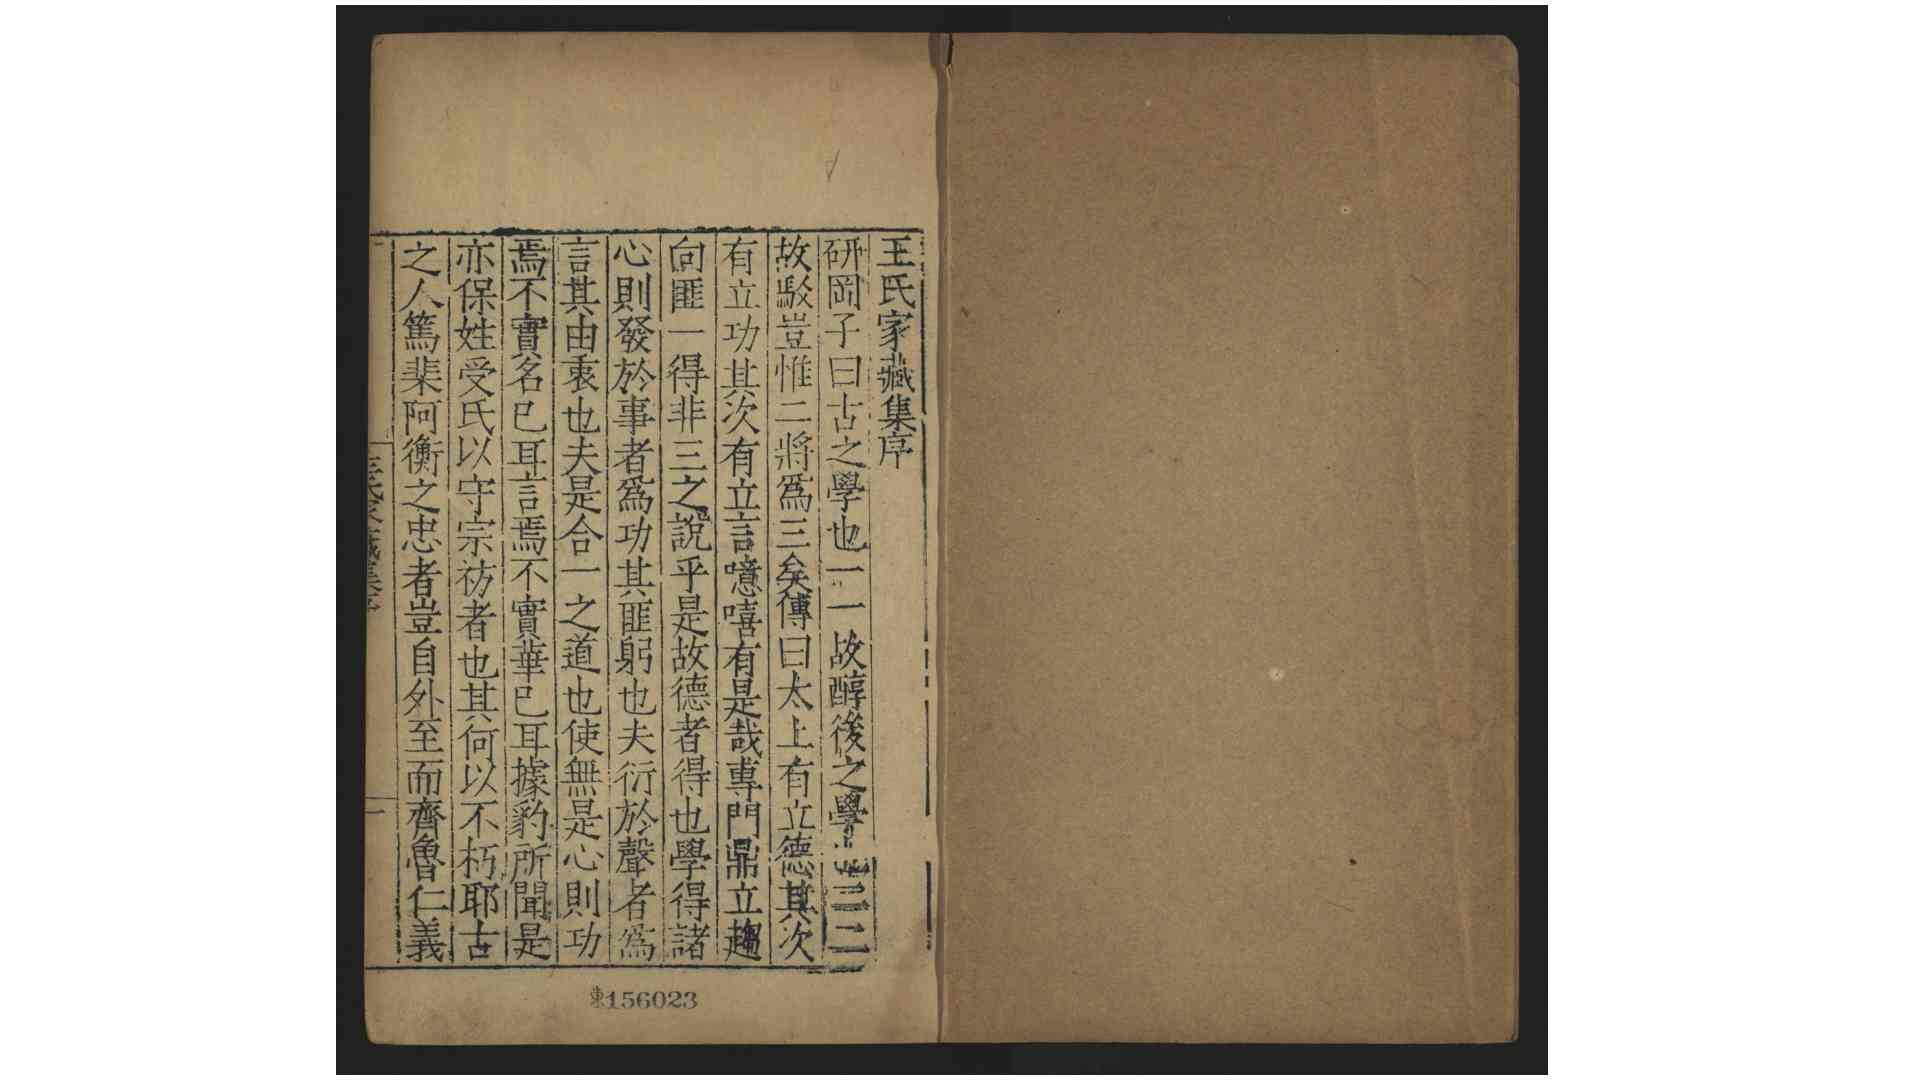 王氏家藏集序
研岡子曰古之學也一一故醇後之學也二二
故駁豈惟二將為三矣傳曰太上有立德其次
有立功其次有立言噫嘻有是哉專門鼎立趨
向匪一得非三之說乎是故德者得也學得諸
心則發於事者為功其匪躬也夫衍於聲者為
言其由衷也夫是合一之道也使無是心則功
焉不實名已耳言焉不實華已耳據豹所聞是
亦保姓受氏以守宗祊者也其何以不朽耶古
之人篤棐阿衡之忠者豈自外至而齊魯仁義
王氏家藏集序
一
東156023